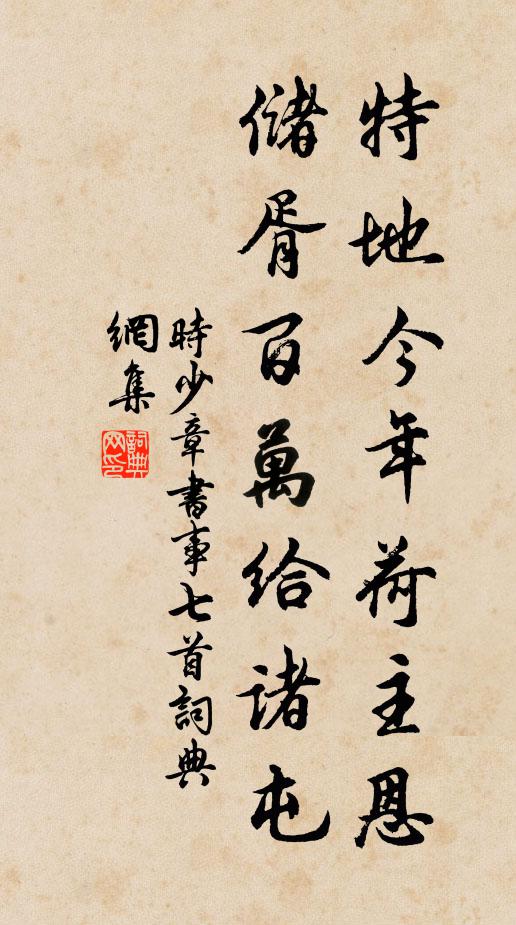 特地今年荷主恩
儲胥百萬給諸屯
時少章書事七首詞典
網集
詞典
网印